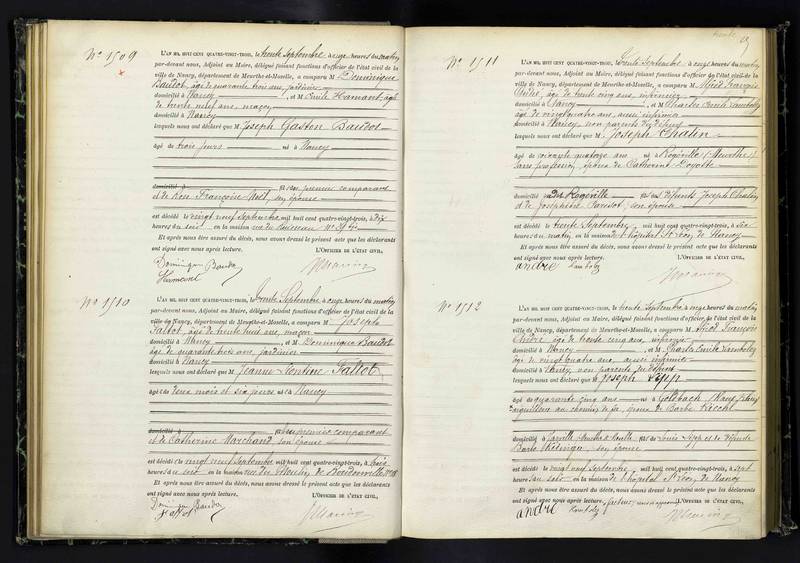 N° 1509
L'AN MIL HUIT CENT QUATRE-VINGT-TROIS, le trente Septembre à onze heures du matin
par-devant nous, Adjoint au Maire, délégué faisant fonctions d'officier de l'état civil de la
ville de Nancy, département de Meurthe-et-Moselle, a comparu M Dominique
Baudot, âgé de quarante trois ans, jardinier
domicilié à Nancy, et M Emile Hamant, âgé
de trente neuf ans, maçon
domicilié à Nancy
lesquels nous ont déclaré que M Joseph Gaston Baudot
âgé de trois jours né à Nancy
domicilié à fils du premier comparant
et de Rose Françoise Noël, son épouse
est décédé le vingt neuf Septembre mil huit cent quatre-vingt-trois, à dix
heures du soir, en la maison rue du
Et après nous être assuré du décès, nous avons dressé le présent acte que les déclarants
ont signé avec nous après lecture. L'OFFICIER DE L'ÉTAT CIVIL,
Dominique Baudot
N° 1510
L'AN MIL HUIT CENT QUATRE-VINGT-TROIS, le trente Septembre à onze heures du matin
par-devant nous, Adjoint au Maire, délégué faisant fonctions d'officier de l'état civil de la
ville de Nancy, département de Meurthe-et-Moselle, a comparu M Joseph
Fallot, âgé de trente huit ans, maçon
domicilié à Nancy, et M Dominique Baudot
âgé de quarante trois ans, jardinier
domicilié à Nancy
lesquels nous ont déclaré que M Jeanne Léontine Fallot
âgé de deux mois et six jours née à Nancy
domicilié à fille du premier comparant
et de Catherine Marchand, son épouse
est décédé le vingt neuf Septembre mil huit cent quatre-vingt-trois, à trois
heures du soir en la maison rue du Moulin de Boudonville
Et après nous être assuré du décès, nous avons dressé le présent acte que les déclarants
ont signé avec nous après lecture. L'OFFICIER DE L'ÉTAT CIVIL,
Dominique Baudot
Fallot
trente
N° 1511
L'AN MIL HUIT CENT QUATRE-VINGT-TROIS, le trente Septembre à onze heures du matin
par-devant nous, Adjoint au Maire, délégué faisant fonctions d'officier de l'état civil de la
ville de Nancy, département de Meurthe-et-Moselle, a comparu M Nicol François
André, âgé de trente cinq ans, infirmier
domicilié à Nancy, et M Charles Emile
âgé de vingt quatre ans, aussi infirmier
domicilié à Nancy non parents du défunt
lesquels nous ont déclaré que M Joseph Chatin
âgé de soixante quatorze ans né à Rogéville (Meurthe)
sans profession, époux de Catherine
domicilié à Rogéville fils des défunts Joseph Chatin
et de Joséphine, son épouse
est décédé le trente Septembre mil huit cent quatre-vingt-trois, à six
heures du matin en la maison de l'hôpital St Léon de Nancy
Et après nous être assuré du décès, nous avons dressé le présent acte que les déclarants
ont signé avec nous après lecture. L'OFFICIER DE L'ÉTAT CIVIL,
andré
N° 1512
L'AN MIL HUIT CENT QUATRE-VINGT-TROIS, le trente Septembre à onze heures du matin
par-devant nous, Adjoint au Maire, délégué faisant fonctions d'officier de l'état civil de la
ville de Nancy, département de Meurthe-et-Moselle, a comparu M Nicol François
André, âgé de trente cinq ans, infirmier
domicilié à Nancy, et M Charles Emile
âgé de vingt quatre ans, aussi infirmier
domicilié à Nancy, non parents du défunt
lesquels nous ont déclaré que Joseph
âgé de quarante cinq ans né à Goldbach
aiguilleur au chemin de fer, époux de Barbe
domicilié à Jarville Meurthe & Moselle fils de Louis et de défunte
Barbe, son épouse
est décédé le vingt neuf Septembre mil huit cent quatre-vingt-trois, à sept
heures du soir en la maison de l'hôpital St Léon de Nancy
Et après nous être assuré du décès, nous avons dressé le présent acte que les déclarants
ont signé avec nous après lecture. L'OFFICIER DE L'ÉTAT CIVIL,
andré